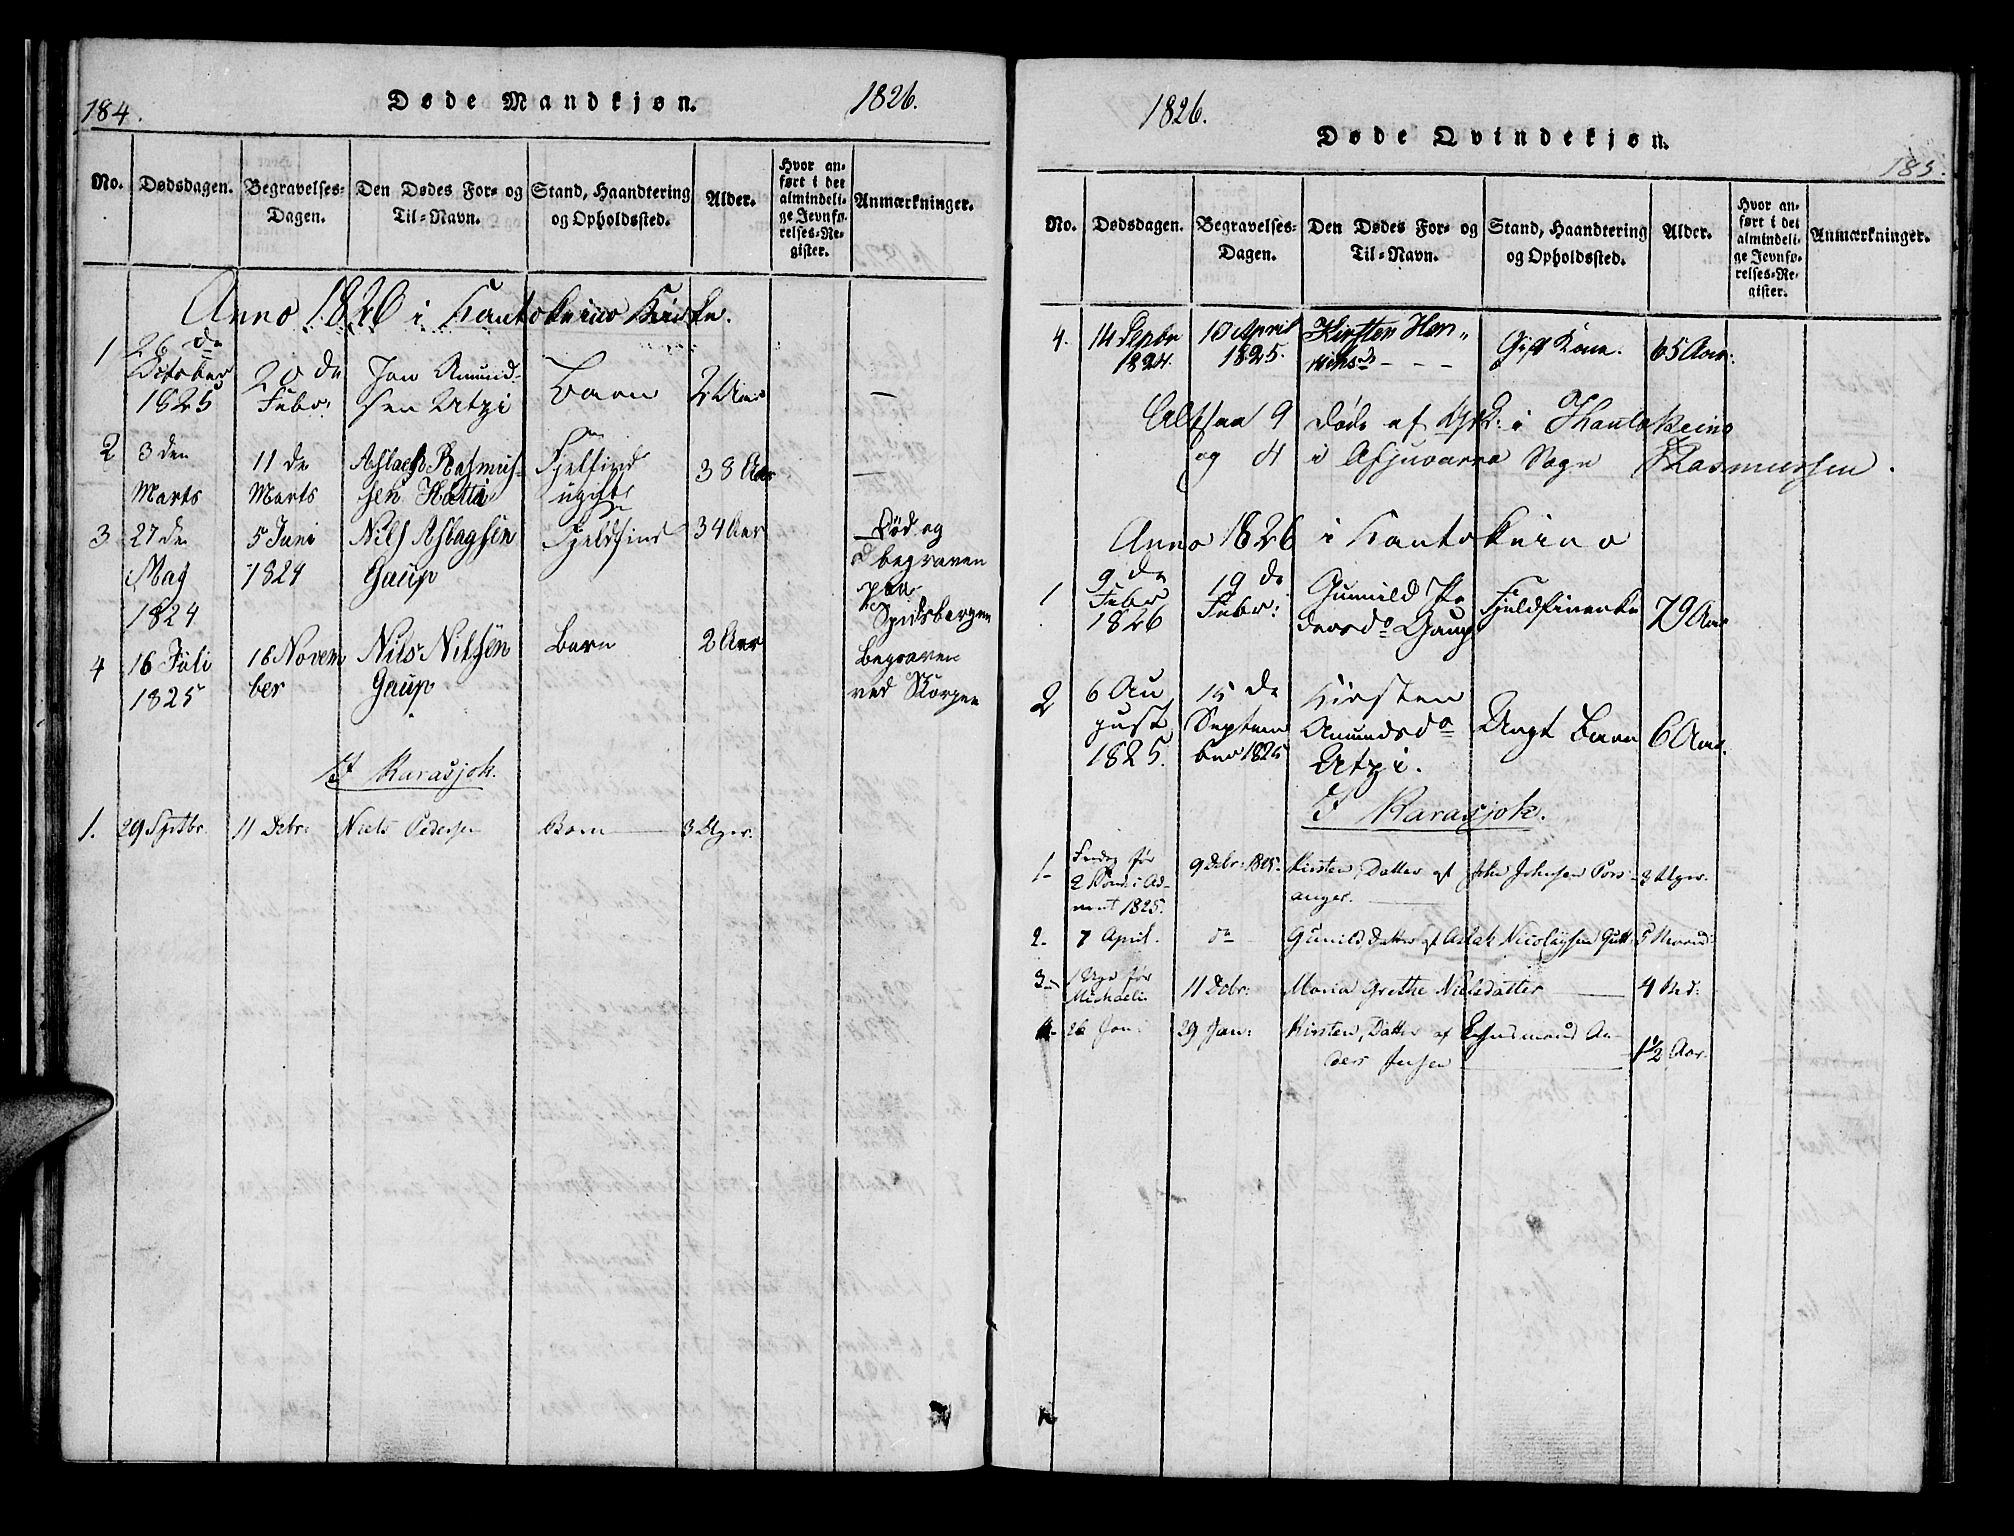 184.
Døde Mandkjøn.
1826.
No.
Dødsdagen.
Begravelses-
Dagen.
Den Dødes For- og
Til-Navn.
Stand, Haandtering
og Opholdssted.
Alder.
Hvor an-
ført i det
almindeli-
ge Jevnfø-
relses-Re-
gister.
Anmærkninger.
Anno 1826 i Kautokeino Kirke.
1 26 de October 1825 20 de Febr: Jon Amund-
sen Utzi Barn 2 Aar —
2 3 den Marts 11 de Marts Aslach Rasmus-
sen Hætta Fjelfind ugift 38 Aar —
3 27 de May 1824 5 Juni 1824 Nils Aslagsen
Gaup Fjeldfind 34 Aar Død og
begraven
paa
Spidsbergen
4 16 Juli 1825 16 Novem
ber Nils Nilsen
Gaup Barn 2 Aar begraven
ved Skorpen
I Karasjok.
1. 29 Septbr. 11 Debr: Niels Pedersen Barn 3 Uger.
1826.
Døde Qvindekjøn.
185.
No.
Dødsdagen.
Begravelses-
Dagen.
Den Dødes For- og
Til-Navn.
Stand, Haandtering
og Opholdssted.
Alder.
Hvor an-
ført i det
almindeli-
ge Jevnfø-
relses-Re-
gister.
Anmærkninger.
4. 14 Sepbr 1824. 10 April 1825. Kirsten Hen-
Gift Kone. 65 Aar.
Altsaa 9 døde af i Kautokeino
og 4 i Afjuvarra Sogn Rasmussen.
Anno 1826 i Kautokeino
1 9 de Febr 1826 19 de Febr: Gunnild Pe
dersdr Gaup 79 Aar
2 6 Au
gust
1825. 15 de
Septem
ber 1825 Kirsten
Amundsdr
Utzi. Ungt Barn 6 Aar.
I Karasjok.
1- før
2 Sønd: i Ad-
vent 1825. 9 Debr: 1825. Kirsten, Datter af John Johnsen Pors-
anger. 3 Uger.
2- 7 April. do Gunild, Datter af Aslak Nicolaysen
3- 1 Uge før
Michaeli. 11 Debr: Maria Grethe Nielsdatter 4 Md:
4- 26 Jan: 29 Jan: Kirsten, Datter af Lensmand An-
ders Jensen 1½ Aar.